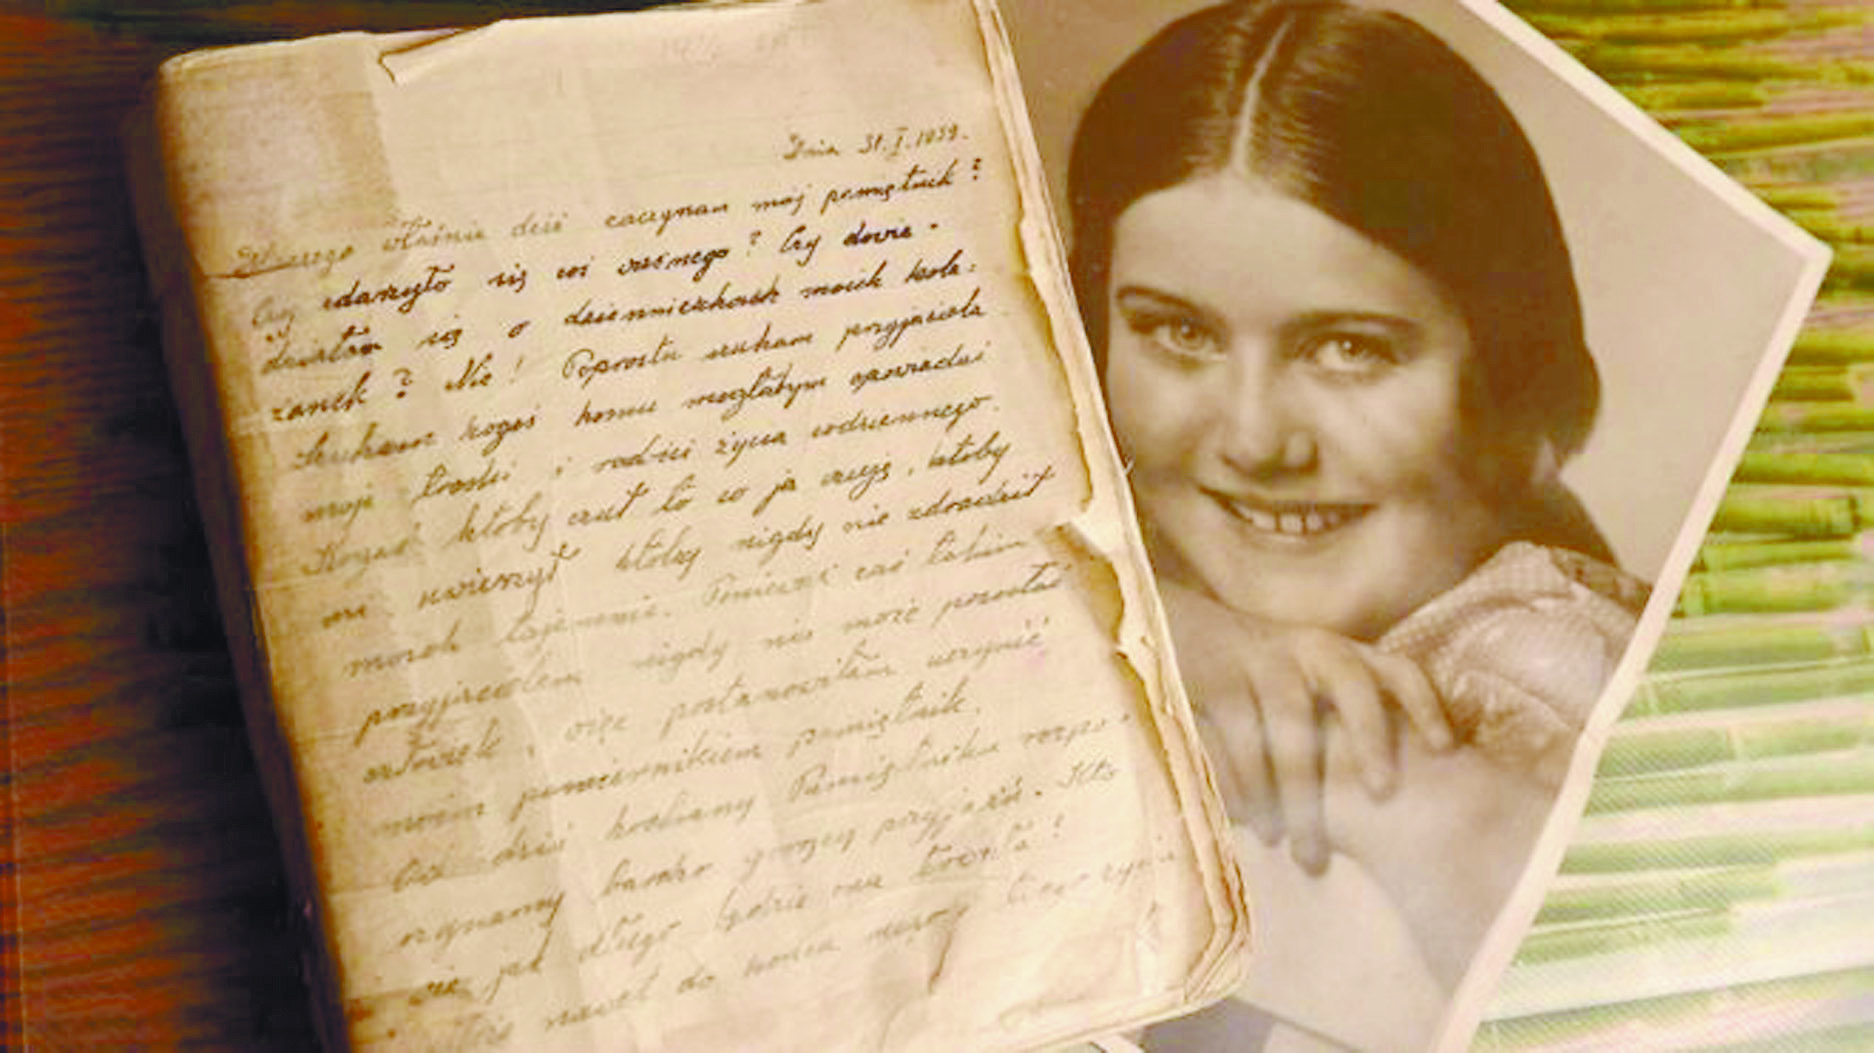 Dnia 31.I.1939.
Dlaczego właśnie dziś zaczynam mój pamiętnik?
Czy zdarzyło się coś ważnego? Czy dowie-
działam się o dzienniczkach moich kole-
żanek? Nie! Poprostu szukam przyjaciela
Szukam kogoś komu mogłabym opowiadać
moje troski i radości życia codziennego.
Kogoś któby czuł to co ja czuję, któby
mi uwierzył któby nigdy nie zdradził
moich tajemnic. Ponieważ zaś takim
przyjacielem nigdy nie może pozostać
człowiek, więc postanowiłam uczynić
moim powiernikiem pamiętnik.
Od dziś kochany Pamiętniku rozpo-
czynamy bardzo przyjaźń. Kto
wie jak długo będzie ona trwała!
Może nawet do końca mego życia